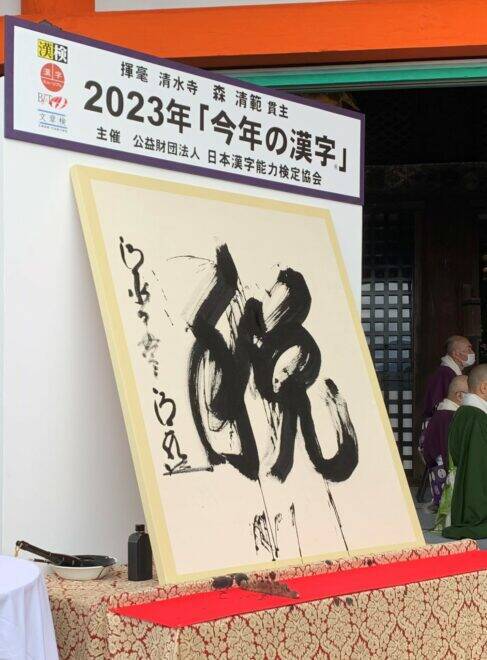 漢検
漢字
文章検
揮毫 清水寺 森 清範 貫主
2023年「今年の漢字®」
主催 公益財団法人 日本漢字能力検定協会
税